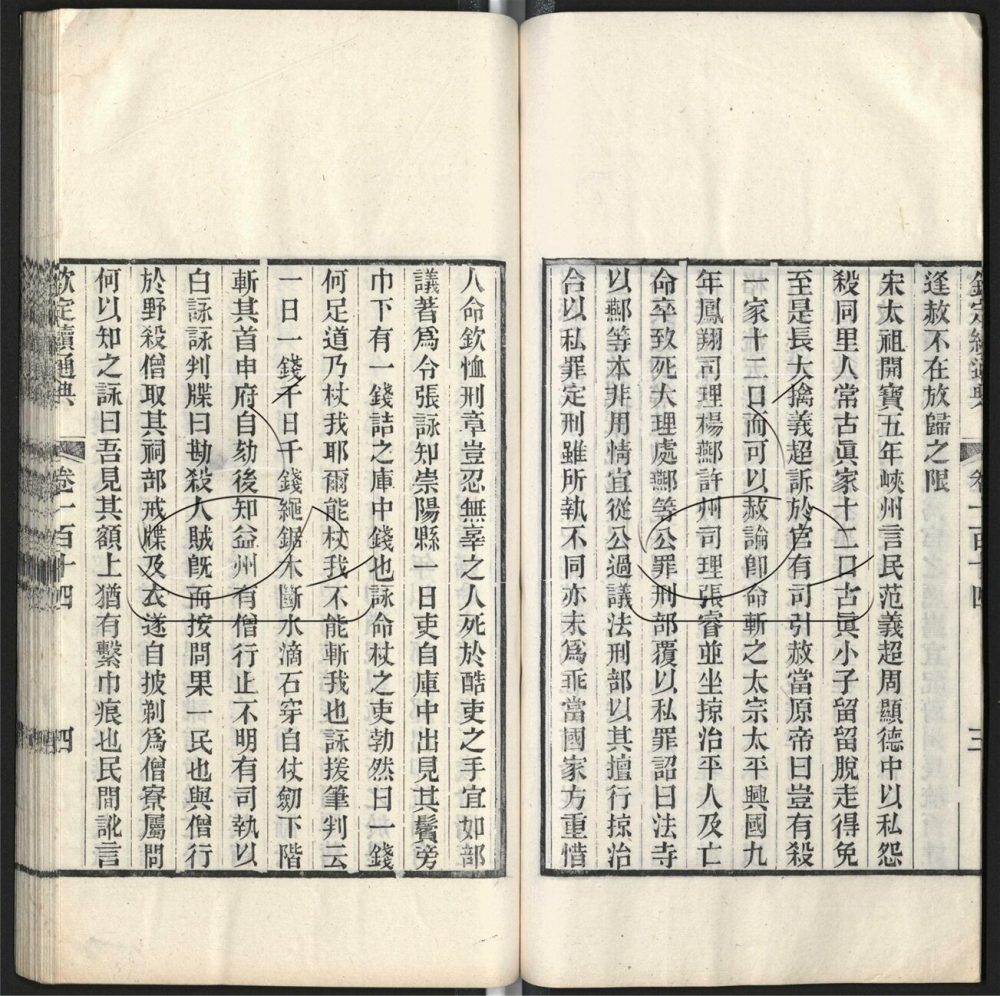 欽定續通典 卷一百十四 三
逢赦不在放歸之限
宋太祖開寶五年峽州言民范義超周顯德中以私怨
殺同里人常古眞家十二口古眞小子留留脫走得免
至是長大擒義超訴於官有司引赦當原帝曰豈有殺
家十二口而可以赦論卽命斬之太宗太平興國九
年鳳翔司理楊鄰許州司理張睿並坐掠治平人及亡
命卒致死大理處鄰等公罪刑部覆以私罪詔曰法寺
以鄰等本非用情宜從公過議法刑部以其擅行掠治
合以私罪定刑雖所執不同亦未爲乖當國家方重惜
人命欽恤刑章豈忍無辜之人死於酷吏之手宜如部
議著爲令張詠知崇陽縣一日吏自庫中出見其鬢旁
巾下有一錢詰之庫中錢也詠命杖之吏勃然曰一錢
何足道乃杖我耶爾能杖我不能斬我也詠援筆判云
一日一錢千日千錢繩鋸木斷水滴石穿自仗劒下階
斬其首申府自劾後知益州有僧行止不明有司執以
白詠詠判牒曰勘殺人賊旣而按問果一民也與僧行
於野殺僧取其祠部戒牒及衣遂自披剃爲僧寮屬問
何以知之詠曰吾見其額上猶有繫巾痕也民間訛言
欽定續通典 卷一百十四 四